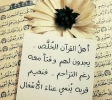 أهلُ القرآن الخُلَّص ..
يجدون لهم وقتاً معه
رغم التزاحم .. فنعيم
قربه يُنسي عناء الأشغال